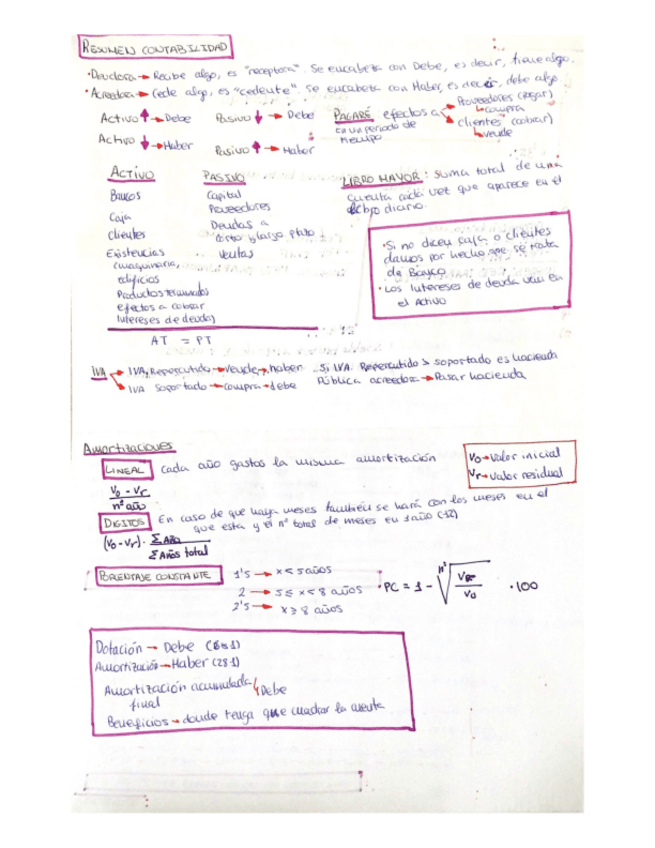 RESUMEN CONTABILIDAD
·Deudora → Recibe algo, es "receptora". Se encabeza con Debe, es decir, tiene algo.
·Acreedora → Cede algo, es "cedente". se encabeza con Haber, es decir, debe algo.
Activo ↑ → Debe
Pasivo ↓ → Debe
Activo ↓ → Haber
Pasivo ↑ → Haber
PAGARÉ efectos a
en un periodo de
tiempo
Proveedores (pagar)
↳ compra
Clientes (cobrar)
↳ vende
ACTIVO
Bancos
Caja
Clientes
Existencias
(maquinaria,
edificios
Productos terminados
efectos a cobrar
Intereses de deuda)
PASIVO
Capital
Proveedores
Deudas a
corto y largo plazo
Ventas
AT = PT
LIBRO MAYOR: suma total de una
cuenta cada vez que aparece en el
libro diario.
·Si no dicen caja, o clientes
damos por hecho que se trata
de Banco
·Los intereses de deuda van en
el Activo
IVA → IVA Repercutido → vende → haber
→ IVA Soportado → compra → debe
Si IVA Repercutido > soportado es hacienda
Pública acreedora → Pasar hacienda
Amortizaciones
LINEAL Cada año gastas la misma amortización
Vo - Vr
nº año
Vo → Valor inicial
Vr → Valor residual
DIGITOS En caso de que haya meses también se hará con los meses en el
que esta y el nº total de meses en 1 año (12)
(Vo - Vr) · Σ Año
Σ Años total
PORENTAJE CONSTANTE
1'5 → x < 5 años
2 → 5 ≤ x < 8 años
2'5 → x ≥ 8 años
·PC = 1 - √ Vr / Vo · 100
Dotación → Debe (681)
Amortización → Haber (281)
Amortización acumulada ↳ Debe
final
Beneficios → donde tenga que cuadrar la cuenta